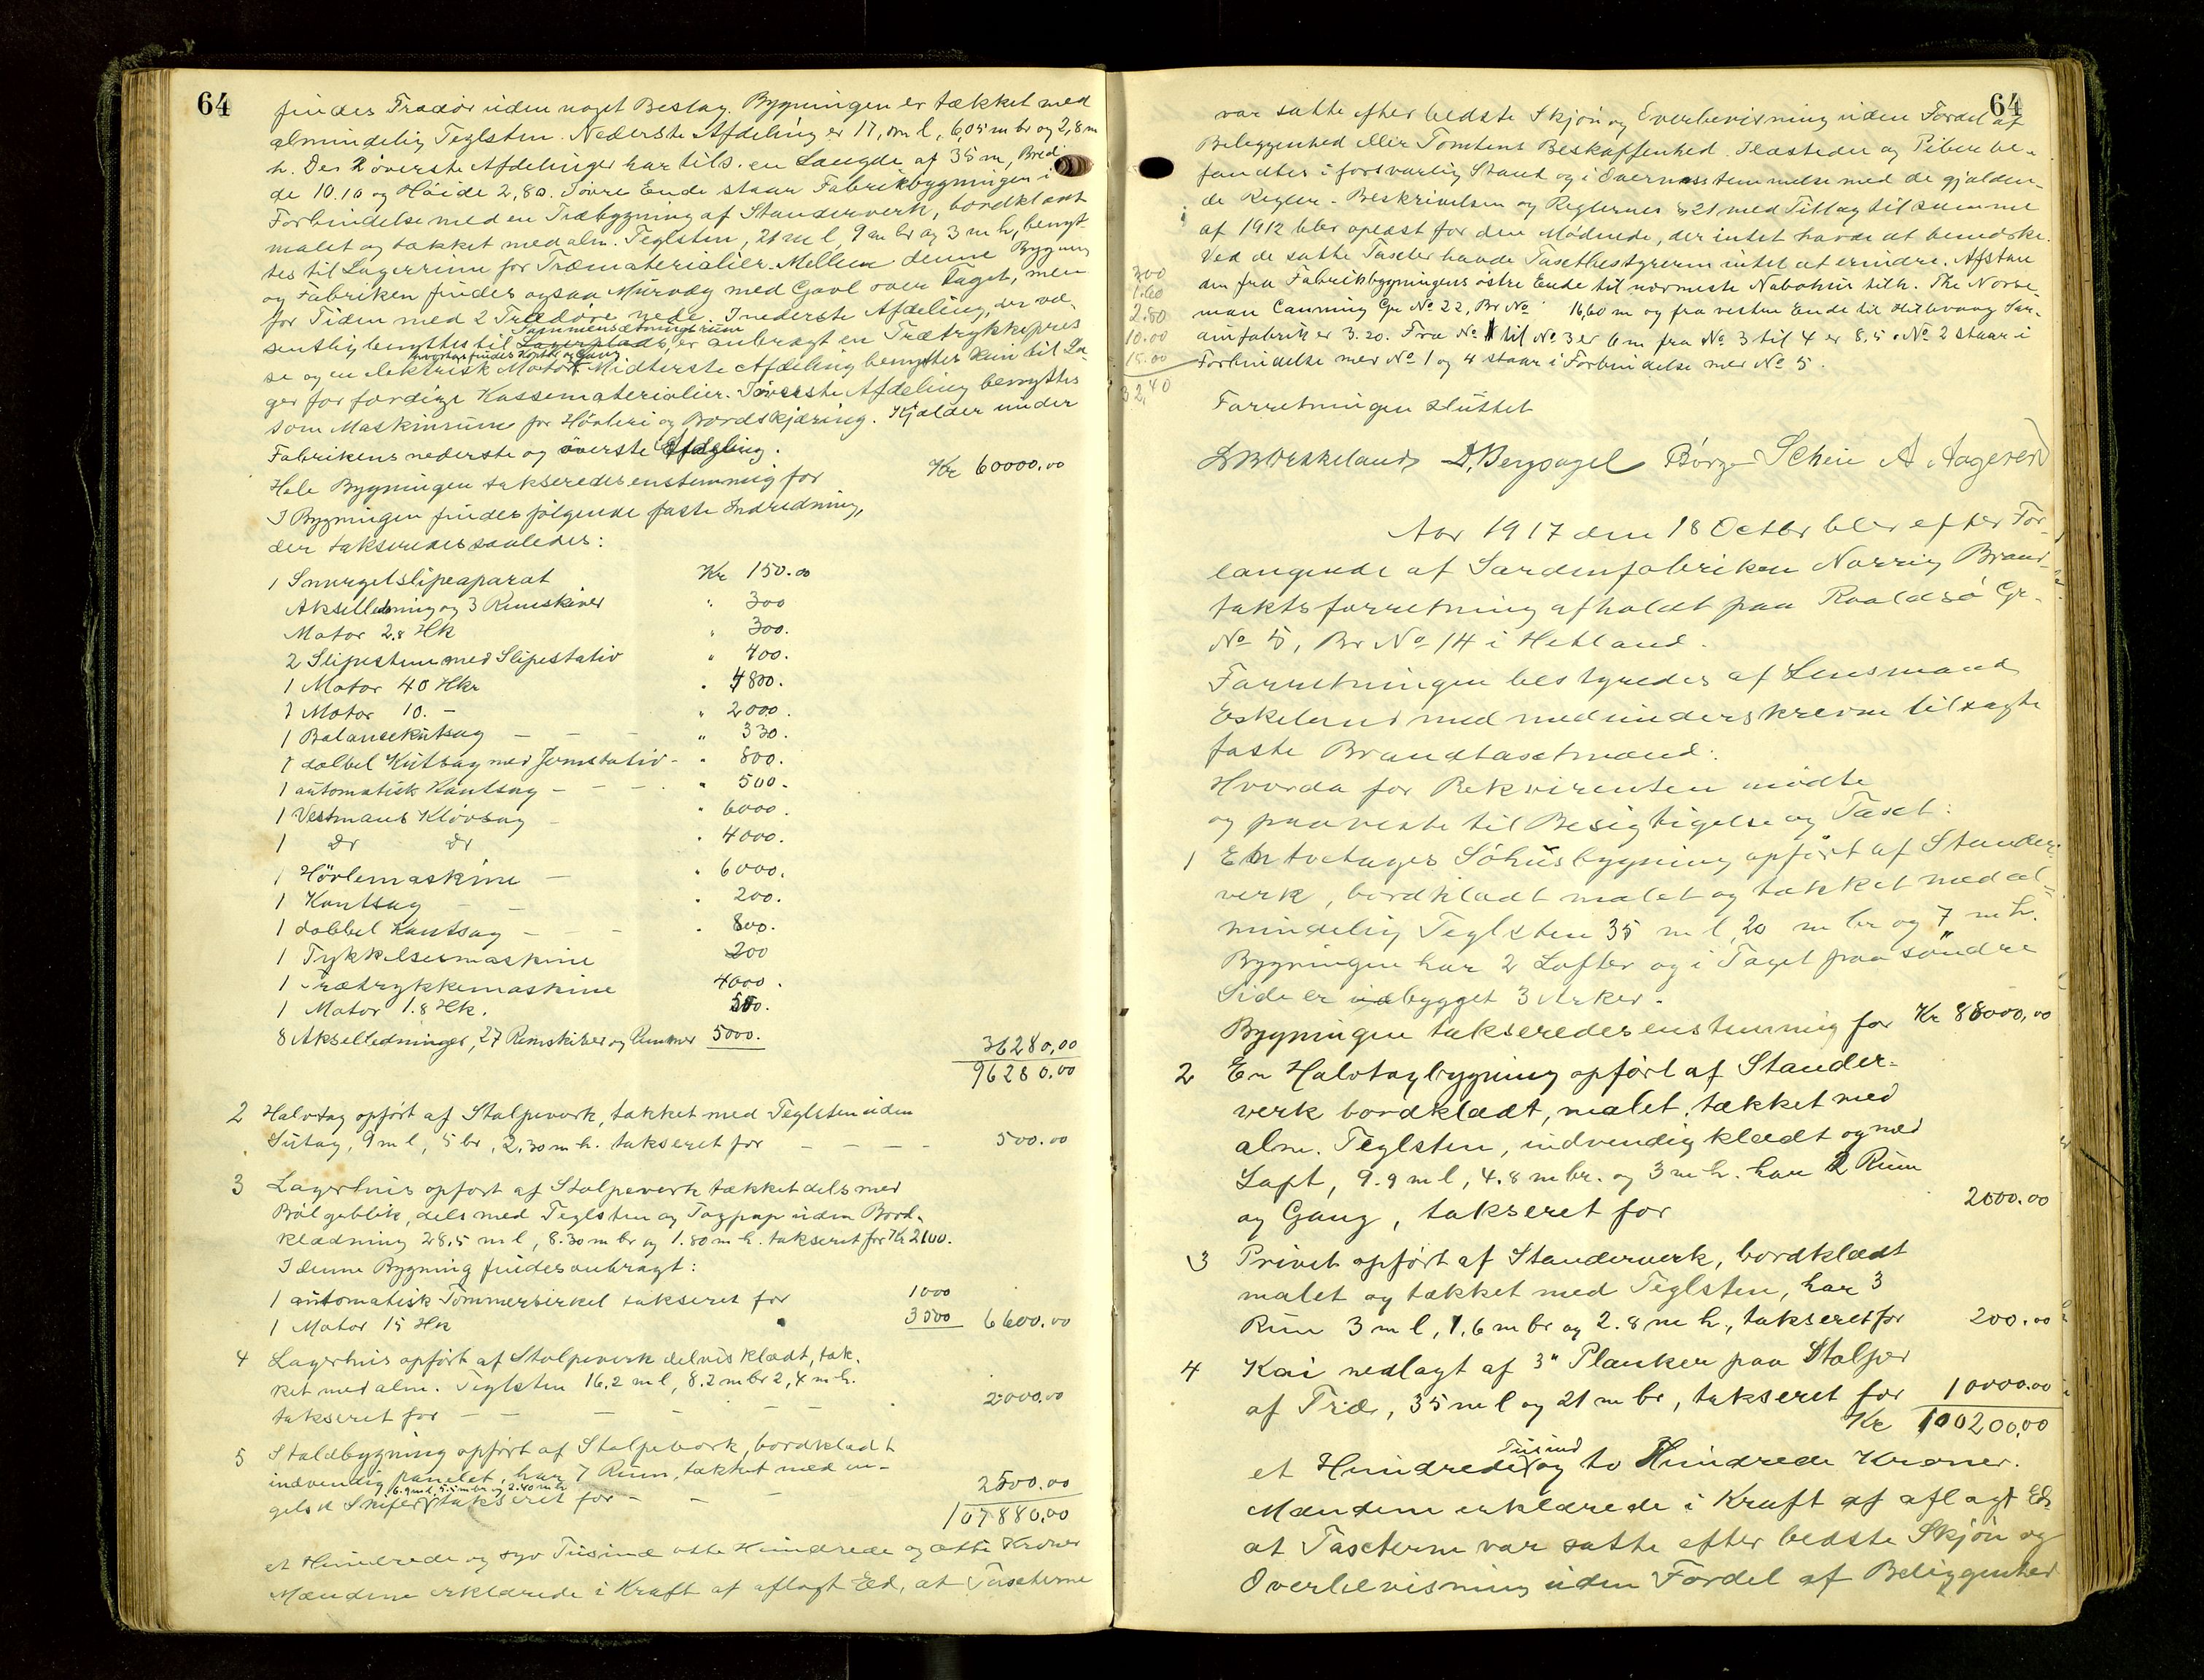 64
findes Trædör uden noget Beslag. Bygningen er tækket med
almindelig Teglsten. Nederste Afdeling er 17,0m l, 6,05 m br og 2,8 m
h. De 2 överste Afdelinger har tils. en Længde af 35 m, Bred-
de 10.10 og Höide 2,80. I övre Ende staar Fabrikbygningen i
Forbindelse med en Træbygning af Standerverk, bordklædt
malet og tækket med alm. Teglsten, 21 m l, 9 m br og 3 m h, benyt-
tes til Lagerrum for Træmaterialier. Mellem denne Bygning
og Fabriken findes ogsaa Murvæg med Gavl over Taget, men
for Tiden med 2 Trædöre nede. I nederste Afdeling, der væ-
Sammensætningsrum
sentlig benyttes til Lagerplads, er anbragt en Trætrykkepres
hvorhos findes Kontor og Gang
se og en elektrisk Motor. Midterste Afdeling benyttes kun til La-
ger for færdige Kassematerialier. I överste Afdeling benyttes
som Maskinrum for Hövleri og Bordskjæring. Kjælder under
Fabrikens nederste og överste Afdeling.
Hele Bygningen takseredes enstemmig for Kr 60000.00
I Bygningen findes fölgende faste Indredning,
der takseredes saaledes:
1 Smergelslipeaparat Kr 150.00
Akselledning og 3 Remskiver " 300
Motor 2.8 Hk " 300.
2 Slipestene med Slipestativ " 400.
1 Motor 40 Hkr " 4800.
1 Motor 10. - " 2000.
1 Balansekutsag - - - " 330.
1 dobbel Kutsag med Jernstativ - " 800.
1 automatisk Kantsag - - - " 500.
1 Vestmans Klövsag - " 6000.
1 Do Do " 4000.
1 Hövlemaskine - " 6000.
1 Kantsag - - " 200.
1 dobbel Kantsag - - - " 800.
1 Tykkelsesmaskine 200
1 Trætrykkemaskine 4000.
1 Motor 1.8 Hk. 500.
8 Akselledninger, 27 Remskiver og Remmer 5000. 36280,00
96280.00
2 Halvtag opfört af Stolpeverk, tækket med Teglsten uden
Sutag, 9 m l, 5 br, 2,30 m h. takseret for - - - - 500.00
3 Lagerhus opfort af Stolpeverk tækket dels med
Bölgeblik, dels med Teglsten og Tagpap uden Bord-
klædning 28,5 m l, 8.30 m br og 1.80 m h. takseret for Kr 2100.
I denne Bygning findes anbragt:
1 automatisk Tömmersirkel takseret for 1000
1 Motor 15 Hk 3500 6600.00
4 Lagerhus opfört af Stolpeverk delvis klædt, tæk-
ket med alm. Teglsten 16.2 m l, 8.2 m br 2,4 m h.
takseret for - - - - - - 2000.00
5 Staldbygning opfört af Stolpeverk, bordklædt
indvendig panelet, har 7 Rum, tækket med en-
6.9 m l, 5.5 m br og 2.40 m h
gelsk Skifer takseret for - - - 2500.00
107880.00
et Hundrede og syv Tusind otte Hundrede og otti Kroner
Mændene erklærede i Kraft af aflagt Ed, at Taxterne
64
var satte efter bedste Skjön og Overbevisning uden Fordel af
Beliggenhed eller Tomtens Beskaffenhed. Ildsteder og Piber be-
fandtes i forsvarlig Stand og i Overensstemmelse med de gjælden-
de Regler. Beskrivelsen og Reglernes § 21 med Tillæg til samme
af 1912 blev oplæst for den Mödende, der intet havde at bemærke.
Ved de satte Taxter havde Taxtbestyreren intet at erindre. Afstan-
den fra Fabrikbygningens östre Ende til nærmeste Nabohus tilh. The Norse-
man Canning Gr No 22, Br No 16,60 m og fra vestre Ende til Hillevaag Sar-
dinfabrik er 3.20. Fra No 1 til No 3 er 6 m fra No 3 til 4 er 8,5. No 2 staar i
Forbindelse med No 1 og 4 staar i Forbindelse med No 5.
300
1.60
2.80
10.00
15.00
32,40
Forretningen sluttet
D. Bergsagel Börge Scheie A Aagesen
Aar 1917 den 18 Octbr blev efter For-
langende af Sardinfabriken Norrig Brand-
taktsforretning afholdt paa Roaldsö Gr.
No 5, Br No 14 i Hetland.
Forretningen bestyredes af Lensmand
Eskeland med medunderskrevne tilsagte
faste Brandtaxtmænd.
Hvorda for Rekvirenten mödte
og paaviste til Besigtigelse og Taxt:
1 En toetages Söhusbygning opfört af Stander-
verk, bordklædt malet og tækket med al-
mindelig Teglsten 35 m l, 20 m br og 7 m h.
Bygningen har 2 Lofter og i Taget paa söndre
Side er indbygget 3 Arker.
Bygningen takseredes enstemmig for Kr 88000,00
2 En Halvtagbygning opfört af Stander-
verk bordklædt, malet, tækket med
alm. Teglsten, indvendig klædt og med
Loft, 9.9 m l, 4.8 m br. og 3 m h. har 2 Rum
og Gang, takseret for 2000.00
3 Privet opfört af Standerverk, bordklædt
malet og tækket med Teglsten, har 3
Rum 3 m l, 1.6 m br og 2.8 m h., takseret for 200.00
4 Kai nedlagt af 3" Planker paa Stolper
af Træ, 35 m l og 21 m br, takseret for 10000.00
Kr 100200,00
Tusind
et Hundrede og to Hundrede Kroner.
Mændene erklærede i Kraft af aflagt Ed
at Taxterne var satte efter bedste Skjön og
Overbevisning uden Fordel af Beliggenhed